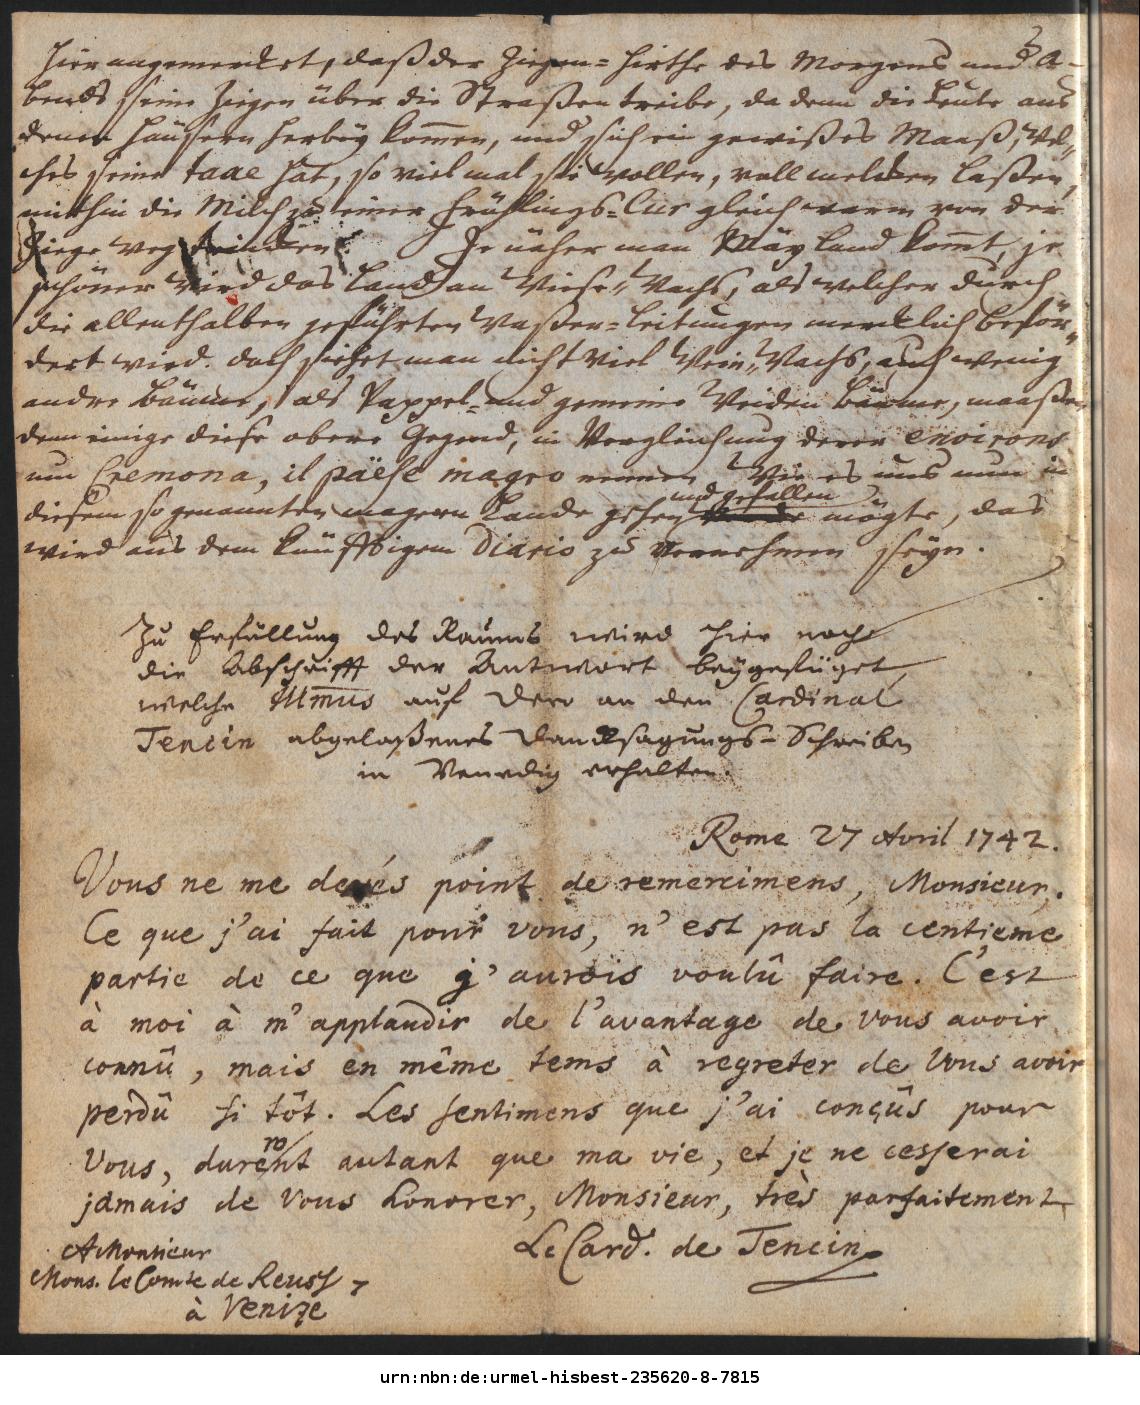 hier angemercket, daß der Ziegen-Hirthe des Morgens und A-
bends seine Ziegen über die Straßen treibe, da denn die Leute aus
denen Häusern herbey kommen, und sich ein gewißes Maaß, wel-
ches seine taxe hat, so viel mal sie wollen, voll melcken laßen,
mithin die Milch zu einer Frühlings-Cur gleich warm von der
Ziege weg trincken. Je näher man Mäyland kommt, je
schöner wird das Land an Wiese-Wachs, als welcher durch
die allenthalben geführten Waßer-Leitungen mercklich beför-
dert wird. doch siehet man nicht viel Wein-Wachs, auch wenig
andre Bäume, als Pappel- und gemeine Weiden Bäume, maaßen
denn einige diese obere Gegend, in Vergleichung derer environs
um Cremona, il païse magro nennen. Wie es uns nun in
diesem so genannten magern Lande gehen und gefallen mögte, das
wird aus dem künfftigen Diario zu vernehmen seyn.
Zu Erfüllung des Raums wird hier noch
die Abschrifft der Antwort beygefüget,
welche Illmus auf Dero an den Cardinal
Tencin abgelaßenes Dancksagungs-Schreiben
in Venedig erhalten.
Rome 27 Avril 1742.
Vous ne me devés point de remercimens, Monsieur.
Ce que j'ai fait pour vous, n'est pas la centieme
partie de ce que j'aurois voulû faire. C'est
à moi à m'applaudir de l'avantage de vous avoir
connû, mais en même tems à regreter de vous avoir
perdû si tôt. Les sentimens que j'ai conçûs pour
vous, dureront autant que ma vie, et je ne cesserai
jamais de vous honorer, Monsieur, très parfaitement
Le Card. de Tencin
A Monsieur
Mons. le Comte de Reuss,
à Venize
urn:nbn:de:urmel-hisbest-235620-8-7815